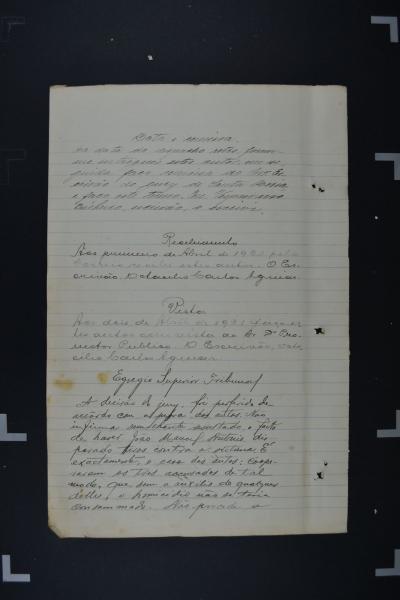 Data e remessa
na data do despacho retro foram-
me entregues estes autos, em se-
guida faço remessa ao Es-
crivão do jury de Santa Maria
e faço este termo. Eu
escrivão, o escrevi.
Recebimento
Aos primeiro de Abril de 1921 pelo
Correio recebi estes autos. O Es-
crivão. Octacilio Carlos Aguiar.
Vista
Aos dois de Abril de 1921 faço es-
tes autos com vista ao Sr. Dr Pro-
motor Publico. O Escrivão, Octa-
cilio Carlos Aguiar
Egregio Superior Tribunal
A decisão do jury foi proferida de
accôrdo com a prova dos autos. Não
infirma semelhante asserto o facto
de haver João Manoel Antonio dis-
parado tiros contra a victima. É
exactamente o caso dos autos: Coope-
raram os trez accusados de tal
modo, que sem o auxilio de qualquer
delles, o homicidio não se teria
consummado. Não procede a